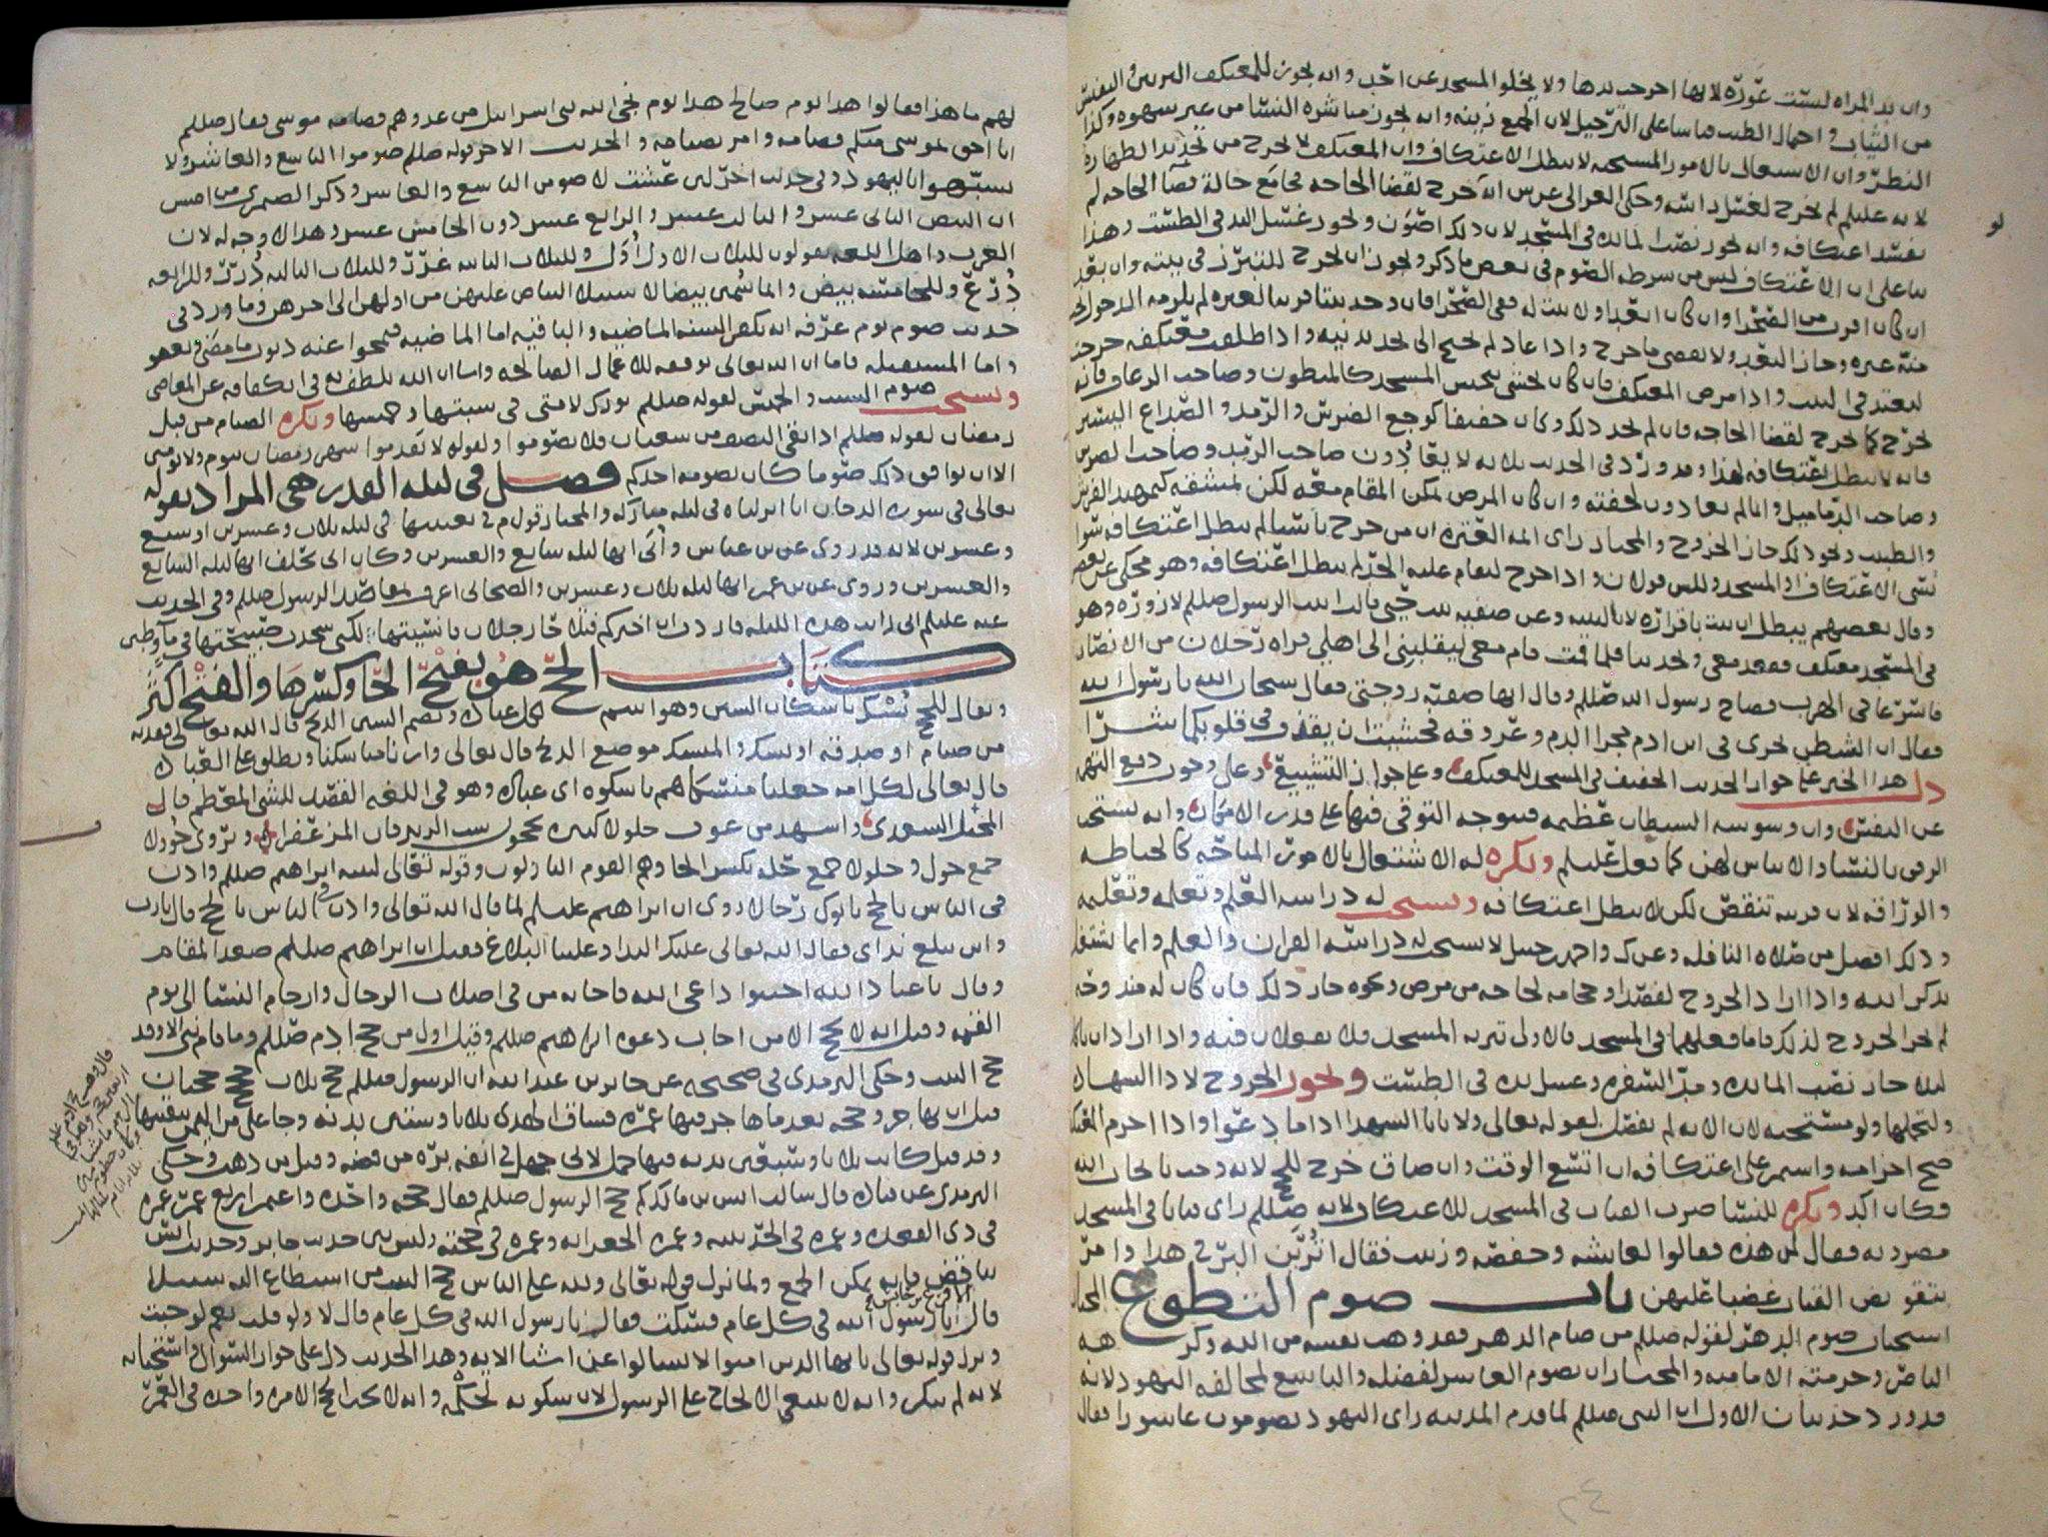 وان يد المراه ليست عورة لانها اخرجت يدها ولا يخلوا المسجد عن احد وانه يجوز للمعتكف التزين والتفتش
من الثياب واحمال الطيب قياسا على الترجيل لان الجمع زينه وانه يجوز مباشره النسا من غير سهوه وكذا
النظر وان الاشتغال بالامور المستحبه لا يبطل الاعتكاف وان المعتكف لا يخرج من تجديد الطهاره
لانه عليلم لم يخرج لغسل راسه وحكى الغزالى عن س انه خرج لقضا الحاجه فجامع حالة قضا الحاجه لم
يفسد اعتكافه وانه يجوز نصب المائده فى المسجد لان ذلك اصون ويجوز غسل اليد فى الطشت وهذا
بنا على ان الاعتكاف ليس من شرطه الصوم فى بعض ما ذكر ويجوز ان يخرج للتبرز فى بيته وان بعد
ان كان اقرب من الصحرا وان كان ابعد او لا بيت له ففى الصحرا فان وجد بيتا قريبا لغيره لم يلزمه الدخول
منه عبره وجاز البعد ولا يقضى ما خرج واذا عاد لم يحتج الى تجديد نيه واذا طلقت معتكفه خرجت
لتعتد فى البيت واذا مرض المعتكف فان كان يخشى تنجس المسجد كالمبطون وصاحب الرعاف فانه
يخرج كما يخرج لقضا الحاجه فان لم يحد ذلك وكان خفيفا كوجع الضرس والرمد والصداع اليسير
فانه لا يبطل اعتكافه لهذا وقد ورد فى الحديث ثلاثه لا يعادون صاحب الرمد وصاحب الضرس
وصاحب الدماميل وانما لم يعادون لخفته وان كان المرض يمكن المقام معه لكن بمشقه كتمهيد الفرش
والطبيب ونحو ذلك جاز الخروج والمختار راى ائمه العتره ان من خرج ناسيا لم يبطل اعتكافه سوا
نسى الاعتكاف او المسجد وللش قولان واذا خرج ليقام عليه الحد لم يبطل اعتكافه وهو محكى عن بعض
وقال بعضهم يبطل ان ثبت باقراره لا بالبينه وعن صفيه بنت حيي قالت اتيت الرسول صللم لازوره وهو
فى المسجد معتكف فقعد معى وتحدثنا فلما قمت قام معى ليقلبنى الى اهلى فراه رجلان من الانصار
فاسرعا فى الهرب فصاح رسول الله صللم وقال انها صفيه زوجتى فقال سبحان الله يا رسول الله
فقال ان الشيطان يجرى فى ابن ادم مجرا الدم وعروقه فخشيت ان يقذف فى قلوبكما شرا
دل هذا الخبر على جواز الحديث الخفيف فى المسجد للمعتكف وعلى جواز التشييع وعلى وجوب دفع التهم
عن النفس وان وسوسه الشيطان عظيمه فيتوجه التوقى فيها على قدر الامكان وانه يستحب
الرفق بالنسا والايناس لهن كما فعل عليلم ويكره له الاشتغال بالامور المباحه كالخياطه
والوراقه لان قربته تنقص لكن لا يبطل اعتكافه ويستحب له دراسه العلم وتعلمه وتعليمه
وذلك افضل من صلاه النافله وعن ك واحمد حنبل لا يستحب له دراسه القران والعلم وانما يشتغل
بذكر الله واذا اراد الخروج لفصد او حجامه لحاجه من مرض ونحوه جاز ذلك فان كان له مندوحه
لم يجز الخروج لذلك فاما فعلهما فى المسجد فالاولى تنزيه المسجد فلا يفعلان فيه واذا اراد ان ياكل
ليلا جاز نصب المائده ومد السفره وغسل يده فى الطشت ويجوز الخروج لادا الشهاده
ولتحملها ولو مستحبه لان الايه لم يفصل لقوله تعالى ولا ياب الشهدا اذا ما دعوا واذا احرم المعتكف
صح احرامه واستمر على اعتكافه ان اتسع الوقت وان ضاق خرج للحج لانه وجب بايجاب الله
فكان اكد ويكره للنسا ضرب القباب فى المسجد للاعتكاف لانه صللم راى قبابا فى المسجد
مضروبه فقال لمن هذه فقالوا لعايشه وحفصه وزينب فقال اترين البر فى هذا وامر
بتقويض القباب غضبا عليهن باب صوم التطوع المختار
استحباب صوم الدهر لقوله صللم من صام الدهر فقد وهب نفسه من الله وكرهه
الناصر وحرمته الاماميه والمختار ان يصوم العاشر لفضله والتاسع لمخالفه اليهود لانه
قد ورد حديثان الاول ان النبى صللم لما قدم المدينه راى اليهود يصومون عاشورا فقال
لهم ما هذا فقالوا هذا يوم صالح هذا يوم نجى الله بنى اسرائيل من عدوهم فصامه موسى فقال صللم
انا احق بموسى منكم فصامه وامر بصيامه والحديث الاخر قوله صللم صوموا التاسع والعاشر ولا
تشبهوا باليهود وفى حديث اخر لئن عشت لاصومن التاسع والعاشر وذكر الصمرى من اصش
ان البيض الثانى عشر والثالث عشر والرابع عشر دون الخامس عشر وهذا لا وجه له لان
العرب واهل اللغه يقولون للثلاث الاول اول وللثلاث الثانيه غرر وللثلاث الثالثه درر وللرابعه
درع وللخامسه بيض وانما سمى بيضا لاستيلا البياض عليهن من اولهن الى اخرهن وما ورد فى
حديث صوم يوم عرفه انه يكفر السنه الماضيه والباقيه اما الماضيه فيمحوا عنه ذنوب ما مضى ويعفو
واما المستقبله فاما ان الله تعالى يوفقه للاعمال الصالحه واما ان الله يلطف به فى انكفافه عن المعاصى
ويستحب صوم السبت والخميس لقوله صللم بورك لامتى فى سبتها وخميسها ويكره الصيام من قبل
رمضان لقوله صللم اذا بقى النصف من شعبان فلا تصوموا ولقوله لا تقدموا شهر رمضان بيوم ولا يومين
الا ان يوافق ذلك صوما كان يصومه احدكم فصل فى ليله القدر هى المراد بقوله
تعالى فى سوره الدخان انا انزلناه فى ليله مباركه والمختار قول م فى تعيينها فى ليله ثلاث وعشرين او سبع
وعشرين لانه قد روى عن بن عباس وأبى انها ليله سابع والعشرين وكان ابى يحلف انها ليله السابع
والعشرين وروى عن بن عمر انها ليله ثلاث وعشرين والصحابى اعرف بمقاصد الرسول صللم وفى الحديث
عنه عليلم انى رايت هذه الليله فاردت ان اخبركم فتلاحا رجلان فانسيتها لكنى سجدت صبيحتها فى مآ وطين
كتاب الحج هو بفتح الحا وكسرها والفتح اكثر
ويقال للحج نسك باسكان السين وهو اسم لكل عباده وبضم السين الذبح قال الله تعالى ففديه
من صيام او صدقه او نسك والمنسك موضع الذبح قال تعالى وارنا مناسكنا ويطلق على العباده
قال تعالى لكل امه جعلنا منسكا هم ناسكوه اى عباده وهو فى اللغه القصد للشى المعظم قال
المخبل السعدى واشهد من عوف حلولا كثيره يحجون سب الزبرقان المزعفرا ويروى حؤولا
جمع حول وحلولا جمع حله بكسر الحا وهم القوم النازلون وقوله تعالى لنبيه ابراهيم صللم واذن
فى الناس بالحج ياتوك رجالا روى ان ابراهيم عليلم لما قال الله تعالى واذن فى الناس بالحج قال يارب
واين يبلغ نداى فقال الله تعالى عليك الندا وعلينا البلاغ فقيل ان ابراهيم صللم صعد المقام
وقال يا عباد الله اجيبوا داعى الله فاجابه من فى اصلاب الرجال وارحام النسا الى يوم
القيمه وقيل انه لا يحج الا من اجاب دعوه ابراهيم صللم وقيل اول من حج ادم صللم وما قام نبى الا وقد
حج البيت وحكى الترمذى فى صحيحه عن جابر بن عبد الله ان الرسول صللم حج ثلاث حجج حجتان
قبل ان يهاجر وحجه بعد ما هاجر فيها عمره فساق الهدى ثلاثا وستين بدنه وجا على من اليمن ببقيتها
وقد قيل كانت ثلاثا وسبعين بدنه فيها جمل لابى جهل فى انفه بره من فضه وقيل من ذهب وحكى
الترمذى عن قتاده قال سالت انس بن مالك كم حج الرسول صللم فقال حجه واحده واعتمر اربع عمر عمره
فى ذى القعده وعمره فى الحديبيه وعمره الجعرانه وعمره فى حجته وليس بين حديث جابر وحديث انس
تناقض فانه يمكن الجمع ولما نزل قوله تعالى ولله على الناس حج البيت من استطاع اليه سبيلا
الاقرع بن حابس
قال يا رسول الله فى كل عام فسكت فقال يا رسول الله فى كل عام قال لا ولو قلت نعم لوجبت
ونزل قوله تعالى يا ايها الذين امنوا لا تسالوا عن اشيا الايه وهذا الحديث دل على جواز السوال واستحبابه
لانه لم ينكر وانه لا ينبغى الالحاح على الرسول لان سكوته لحكمه وانه لا يجب الحج الا مره واحده فى العمر